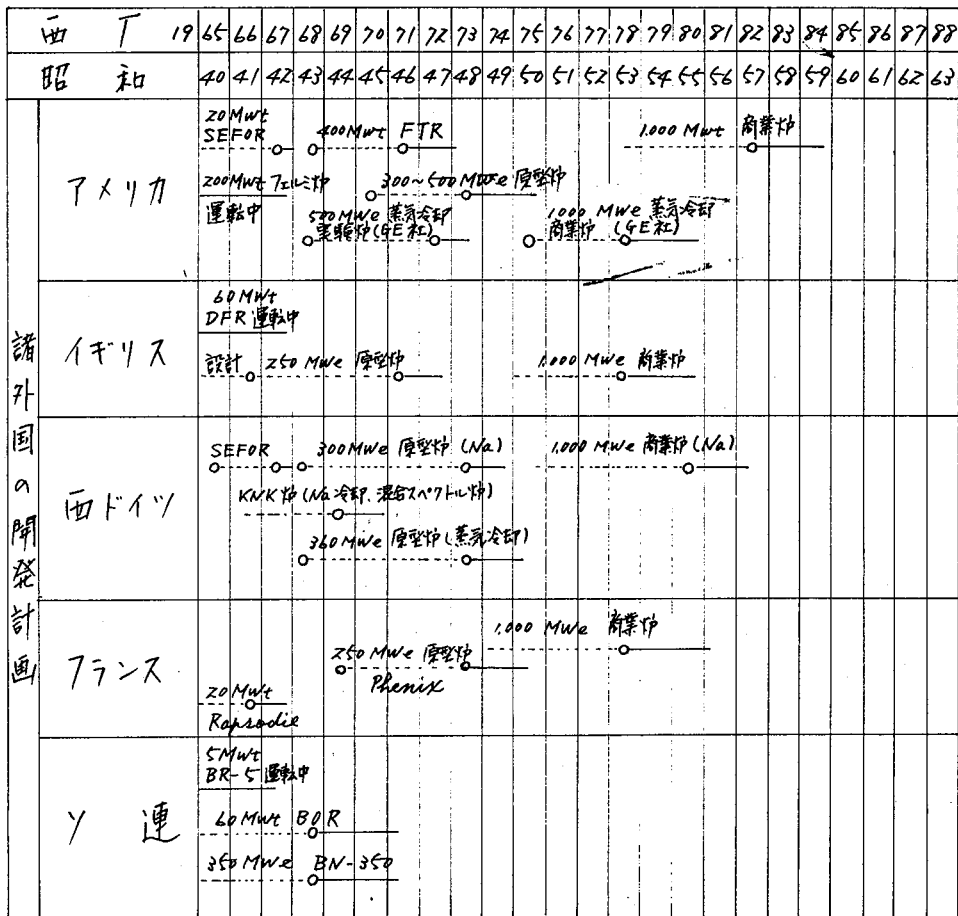 西 丁 19 65 66 67 68 69 70 71 72 73 74 75 76 77 78 79 80 81 82 83 84 85 86 87 88
昭 和 40 41 42 43 44 45 46 47 48 49 50 51 52 53 54 55 56 57 58 59 60 61 62 63
諸外国の開発計画
アメリカ
20 Mwt
SEFOR
400 Mwt FTR
1,000 Mwt 商業炉
200 Mwt フェルミ炉
運転中
300~500 MWe 原型炉
500 MWe 蒸気冷却
実験炉(GE社)
1000 MWe 蒸気冷却
商業炉 (GE社)
イギリス
60 Mwt
DFR 運転中
設計 250 MWe 原型炉
1,000 MWe 商業炉
西ドイツ
SEFOR
300 MWe 原型炉 (Na)
1,000 MWe 商業炉(Na)
KNK 炉 (Na冷却、混合スペクトル炉)
360 MWe 原型炉 (蒸気冷却)
フランス
1,000 MWe 商業炉
250 MWe 原型炉
Phenix
20 Mwt
Rapsodie
ソ 連
5 Mwt
BR-5 運転中
60 Mwt BOR
350 MWe BN-350